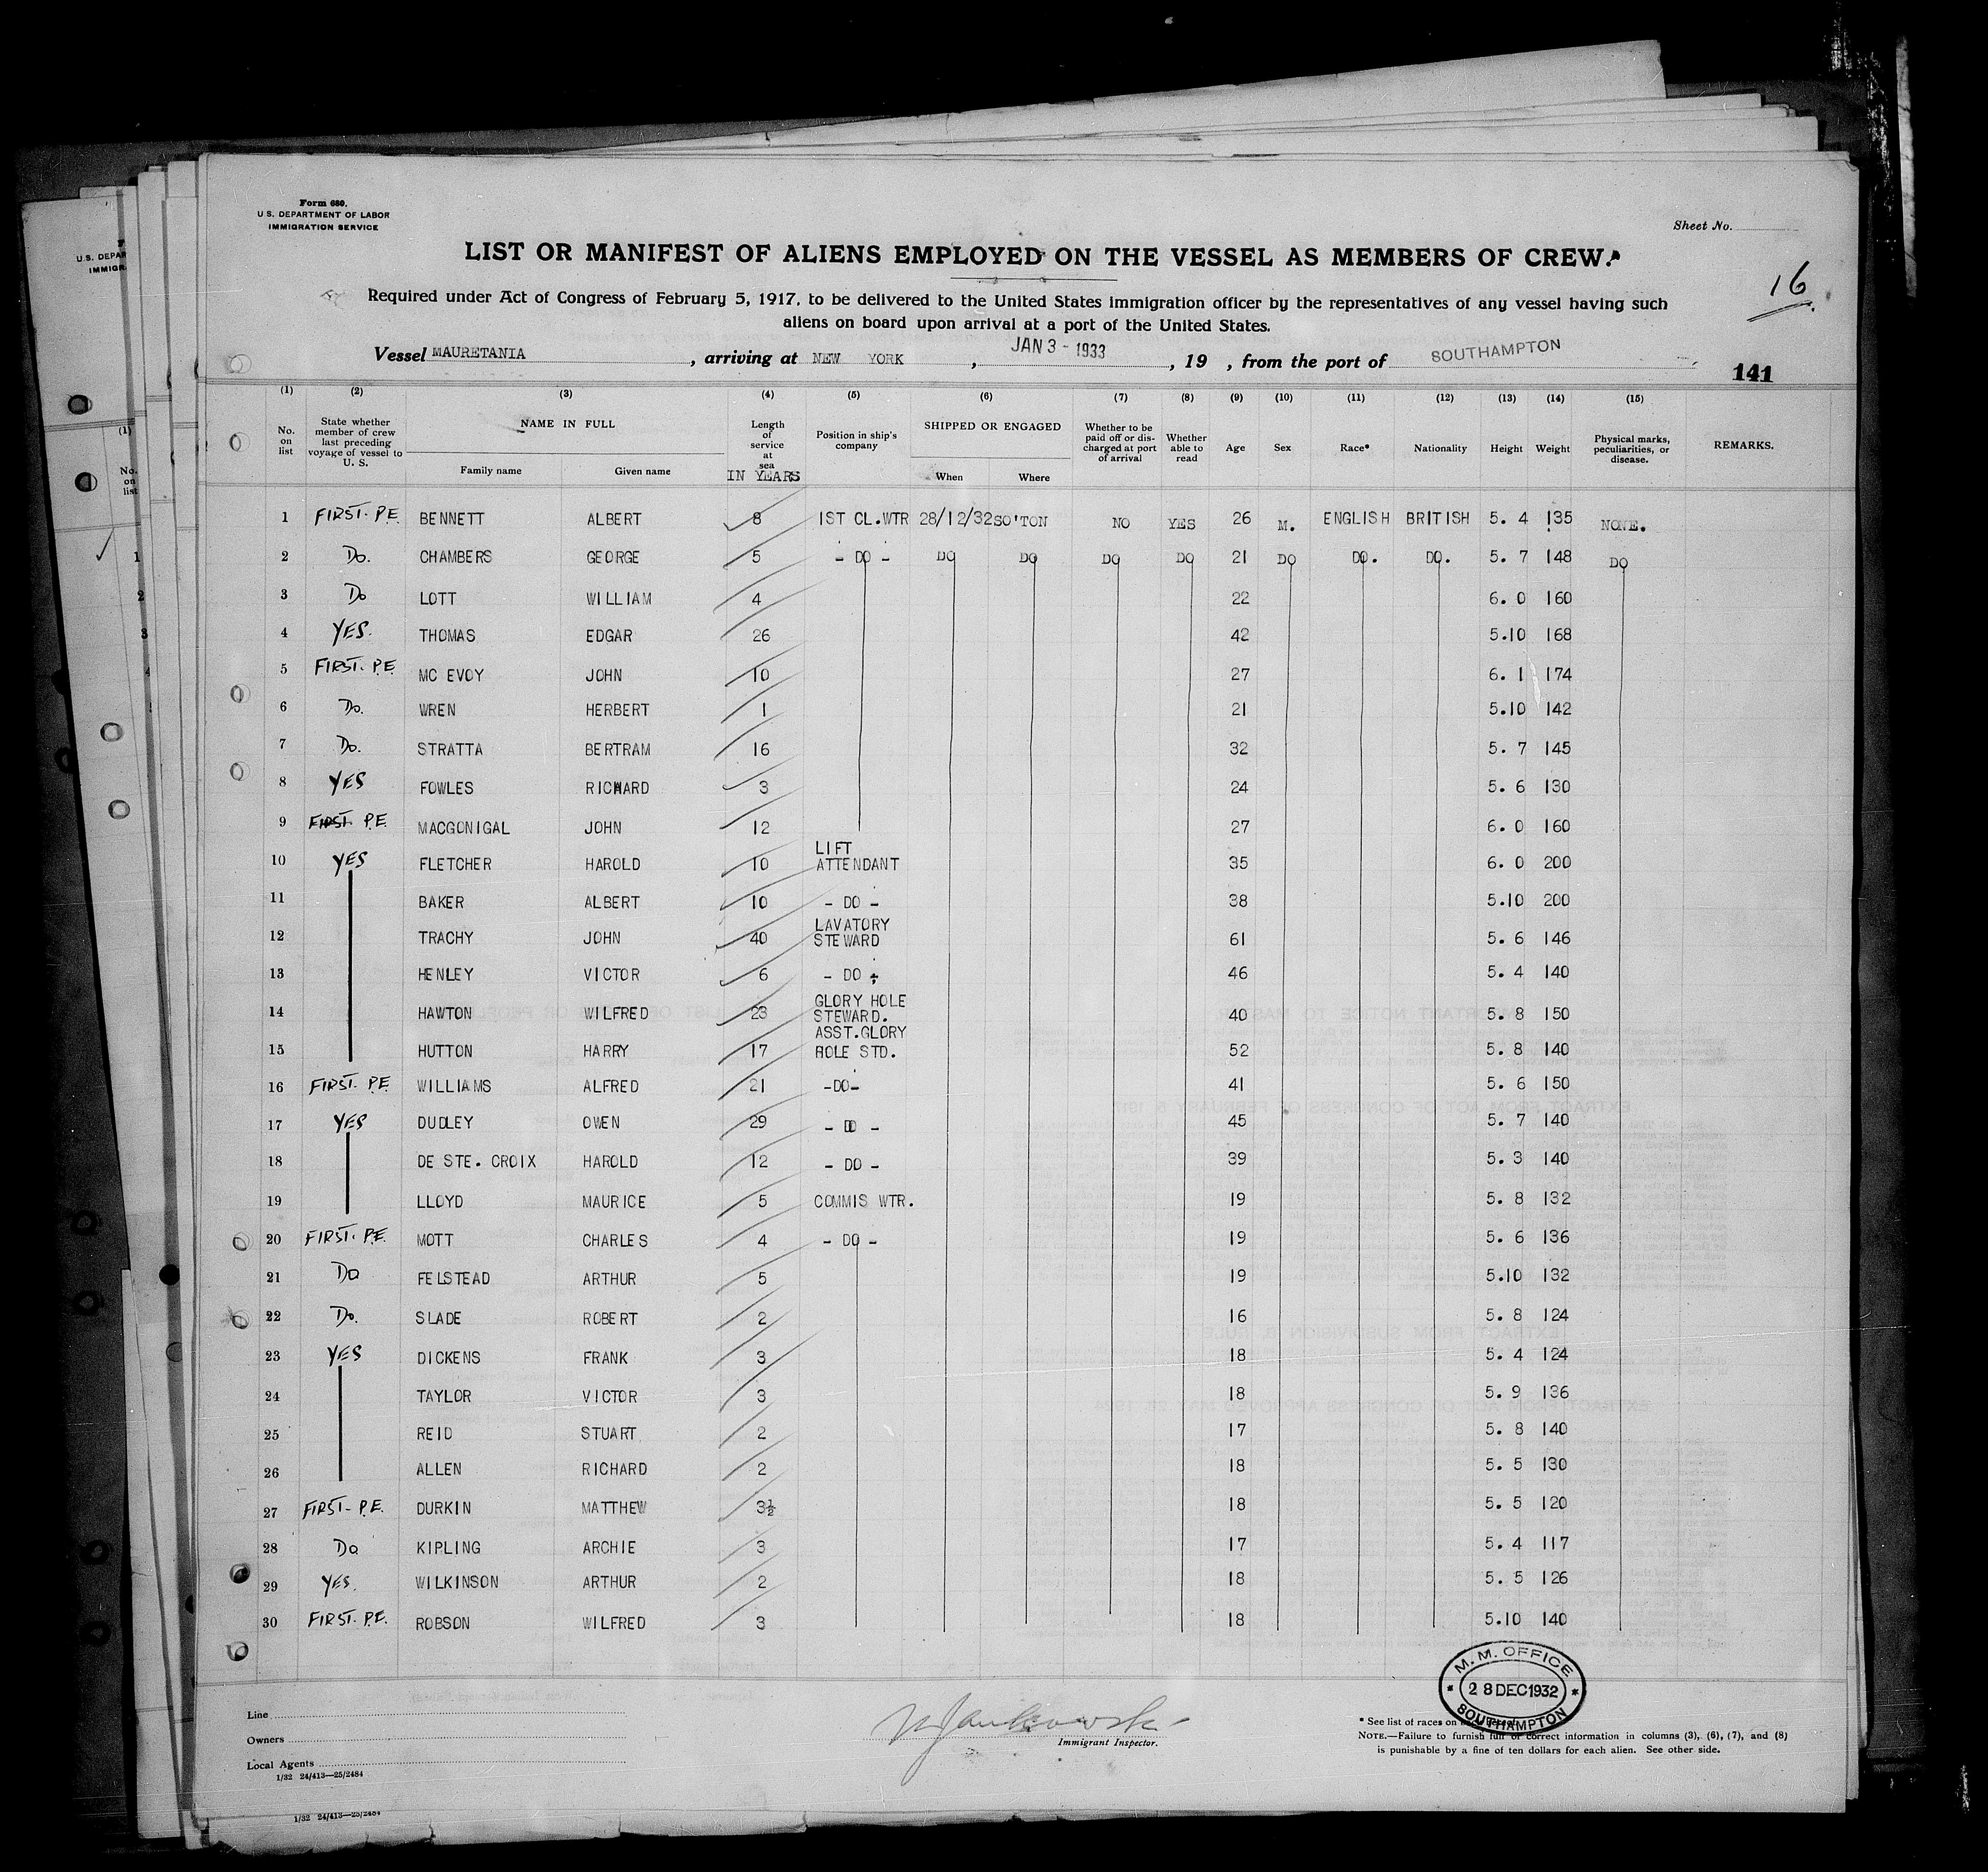 Form 680.
U.S. DEPARTMENT OF LABOR
IMMIGRATION SERVICE
Sheet No.
LIST OR MANIFEST OF ALIENS EMPLOYED ON THE VESSEL AS MEMBERS OF CREW.
16
Required under Act of Congress of February 5, 1917, to be delivered to the United States immigration officer by the representatives of any vessel having such
aliens on board upon arrival at a port of the United States.
Vessel MAURETANIA, arriving at NEW YORK, JAN 3 - 1933, 19 , from the port of SOUTHAMPTON
141
(1) (2) (3) (4) (5) (6) (7) (8) (9) (10) (11) (12) (13) (14) (15)
No. on list State whether member of crew last preceding voyage of vessel to U. S. NAME IN FULL Family name Given name Length of service at sea IN YEARS Position in ship's company SHIPPED OR ENGAGED When Where Whether to be paid off or discharged at port of arrival Whether able to read Age Sex Race* Nationality Height Weight Physical marks, peculiarities, or disease. REMARKS.
1 FIRST. P.E. BENNETT ALBERT 8 1ST CL.WTR 28/12/32 SO'TON NO YES 26 M. ENGLISH BRITISH 5. 4 135 NONE.
2 Do. CHAMBERS GEORGE 5 - DO - DO DO DO DO 21 DO DO. DO. 5. 7 148 DO
3 Do LOTT WILLIAM 4 22 6. 0 160
4 YES. THOMAS EDGAR 26 42 5.10 168
5 FIRST. P.E MC EVOY JOHN 10 27 6. 1 174
6 Do. WREN HERBERT 1 21 5.10 142
7 Do. STRATTA BERTRAM 16 32 5. 7 145
8 YES FOWLES RICHARD 3 24 5. 6 130
9 FIRST P.E. MACGONIGAL JOHN 12 27 6. 0 160
10 YES FLETCHER HAROLD 10 LIFT ATTENDANT 35 6. 0 200
11 BAKER ALBERT 10 - DO - 38 5.10 200
12 TRACHY JOHN 40 LAVATORY STEWARD 61 5. 6 146
13 HENLEY VICTOR 6 - DO - 46 5. 4 140
14 HAWTON WILFRED 23 GLORY HOLE STEWARD. 40 5. 8 150
15 HUTTON HARRY 17 ASST.GLORY HOLE STD. 52 5. 8 140
16 FIRST. P.E WILLIAMS ALFRED 21 -DO- 41 5. 6 150
17 YES DUDLEY OWEN 29 - DO - 45 5. 7 140
18 DE STE. CROIX HAROLD 12 - DO - 39 5. 3 140
19 LLOYD MAURICE 5 COMMIS WTR. 19 5. 8 132
20 FIRST. P.E. MOTT CHARLES 4 - DO - 19 5. 6 136
21 Do FELSTEAD ARTHUR 5 19 5.10 132
22 Do. SLADE ROBERT 2 16 5. 8 124
23 YES DICKENS FRANK 3 18 5. 4 124
24 TAYLOR VICTOR 3 18 5. 9 136
25 REID STUART 2 17 5. 8 140
26 ALLEN RICHARD 2 18 5. 5 130
27 FIRST - P.E. DURKIN MATTHEW 3½ 18 5. 5 120
28 Do KIPLING ARCHIE 3 17 5. 4 117
29 YES. WILKINSON ARTHUR 2 18 5. 5 126
30 FIRST. P.E. ROBSON WILFRED 3 18 5.10 140
M. M. OFFICE
28 DEC 1932
SOUTHAMPTON
Line
Owners
Local Agents
1/32 24/413—25/2484
Immigrant Inspector.
* See list of races on
NOTE.—Failure to furnish full or correct information in columns (3), (6), (7), and (8)
is punishable by a fine of ten dollars for each alien. See other side.
1/32 24/413—25/2484